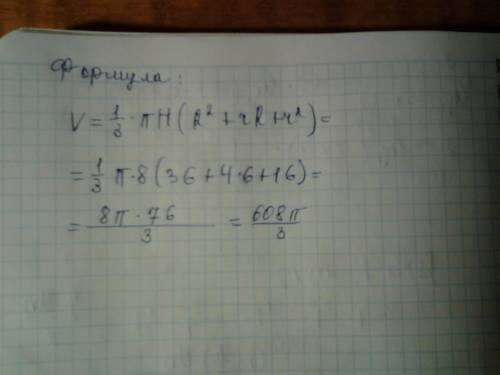 Формула:
V = 1/3 · πH(R² + rR + r²) =
= 1/3 π·8(36 + 4·6 + 16) =
= 8π · 76 / 3 = 608π / 3